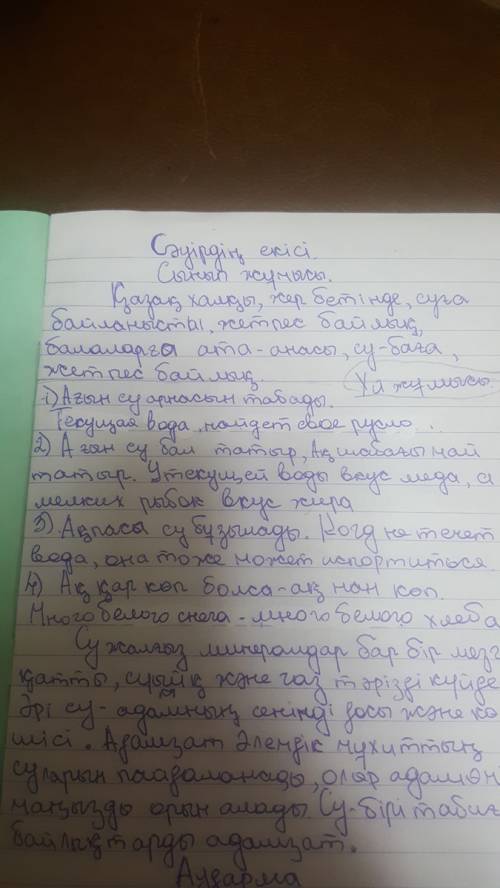 Сәуірдің екісі.
Сынып жұмысы.
Қазақ халқы, жер бетінде, суға
байланысты, жетпес байлық,
балаларға ата-анасы, су-баға,
жетпес байлық. Үй жұмысы.
1) Ағын су арнасын табады.
Текущая вода, найдет свое русло...
2) Ағын су бал татыр, Ақ шабағы май
татыр. У текущей воды вкус меда, а
мелких рыбок вкус жира
3) Ақпаса су бұзылады. Когд не течет
вода, она тоже может испортиться
4) Ақ қар көп болса-ақ нан көп.
Много белого снега - много белого хлеба
Су жалғыз минералдар бар бір мезг
қатты, сұйық және газ тәрізді күйде
Әрі су- адамның сенімді досы және кө
шісі. Адамзат Әлемдік мұхиттың
суларын пайдаланады, олар адам өмі
маңызды орын алады. Су-бірі табиғ
байлықтарды адамзат.
Аударма